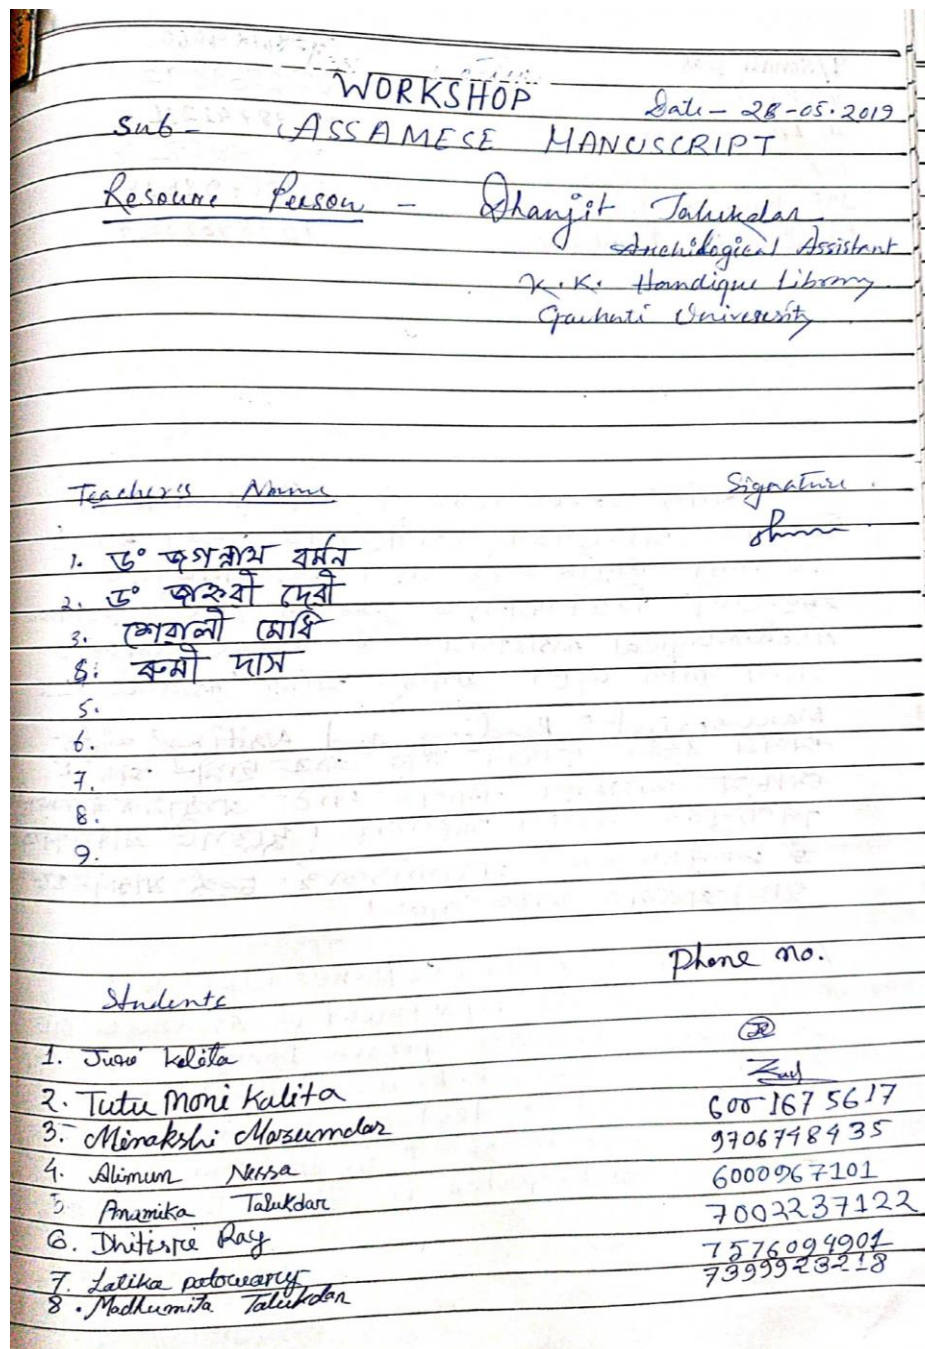 WORKSHOP
Date - 28-05-2019
Sub - ASSAMESE MANUSCRIPT
Resourse Person - Dhanjit Talukdar
Archilogical Assistant
K. K. Handique Library
Gauhati University
Teacher's Name Signature
1. ড° জগন্নাথ বৰ্মন
2. ড° জাহ্নবী দেৱী
3. শেৱালী মেধি
4. ৰুমী দাস
5.
6.
7.
8.
9.
Students Phone no.
1. Juri Kalita
2. Tutu Moni Kalita 600 167 5617
3. Minakshi Mazumdar 9706748435
4. Alimun Nessa 6000967101
5 Anamika Talukdar 7002237122
6. Dhitisrie Ray 7576094901
7. Latika patowary 7399923218
8. Madhumita Talukdar